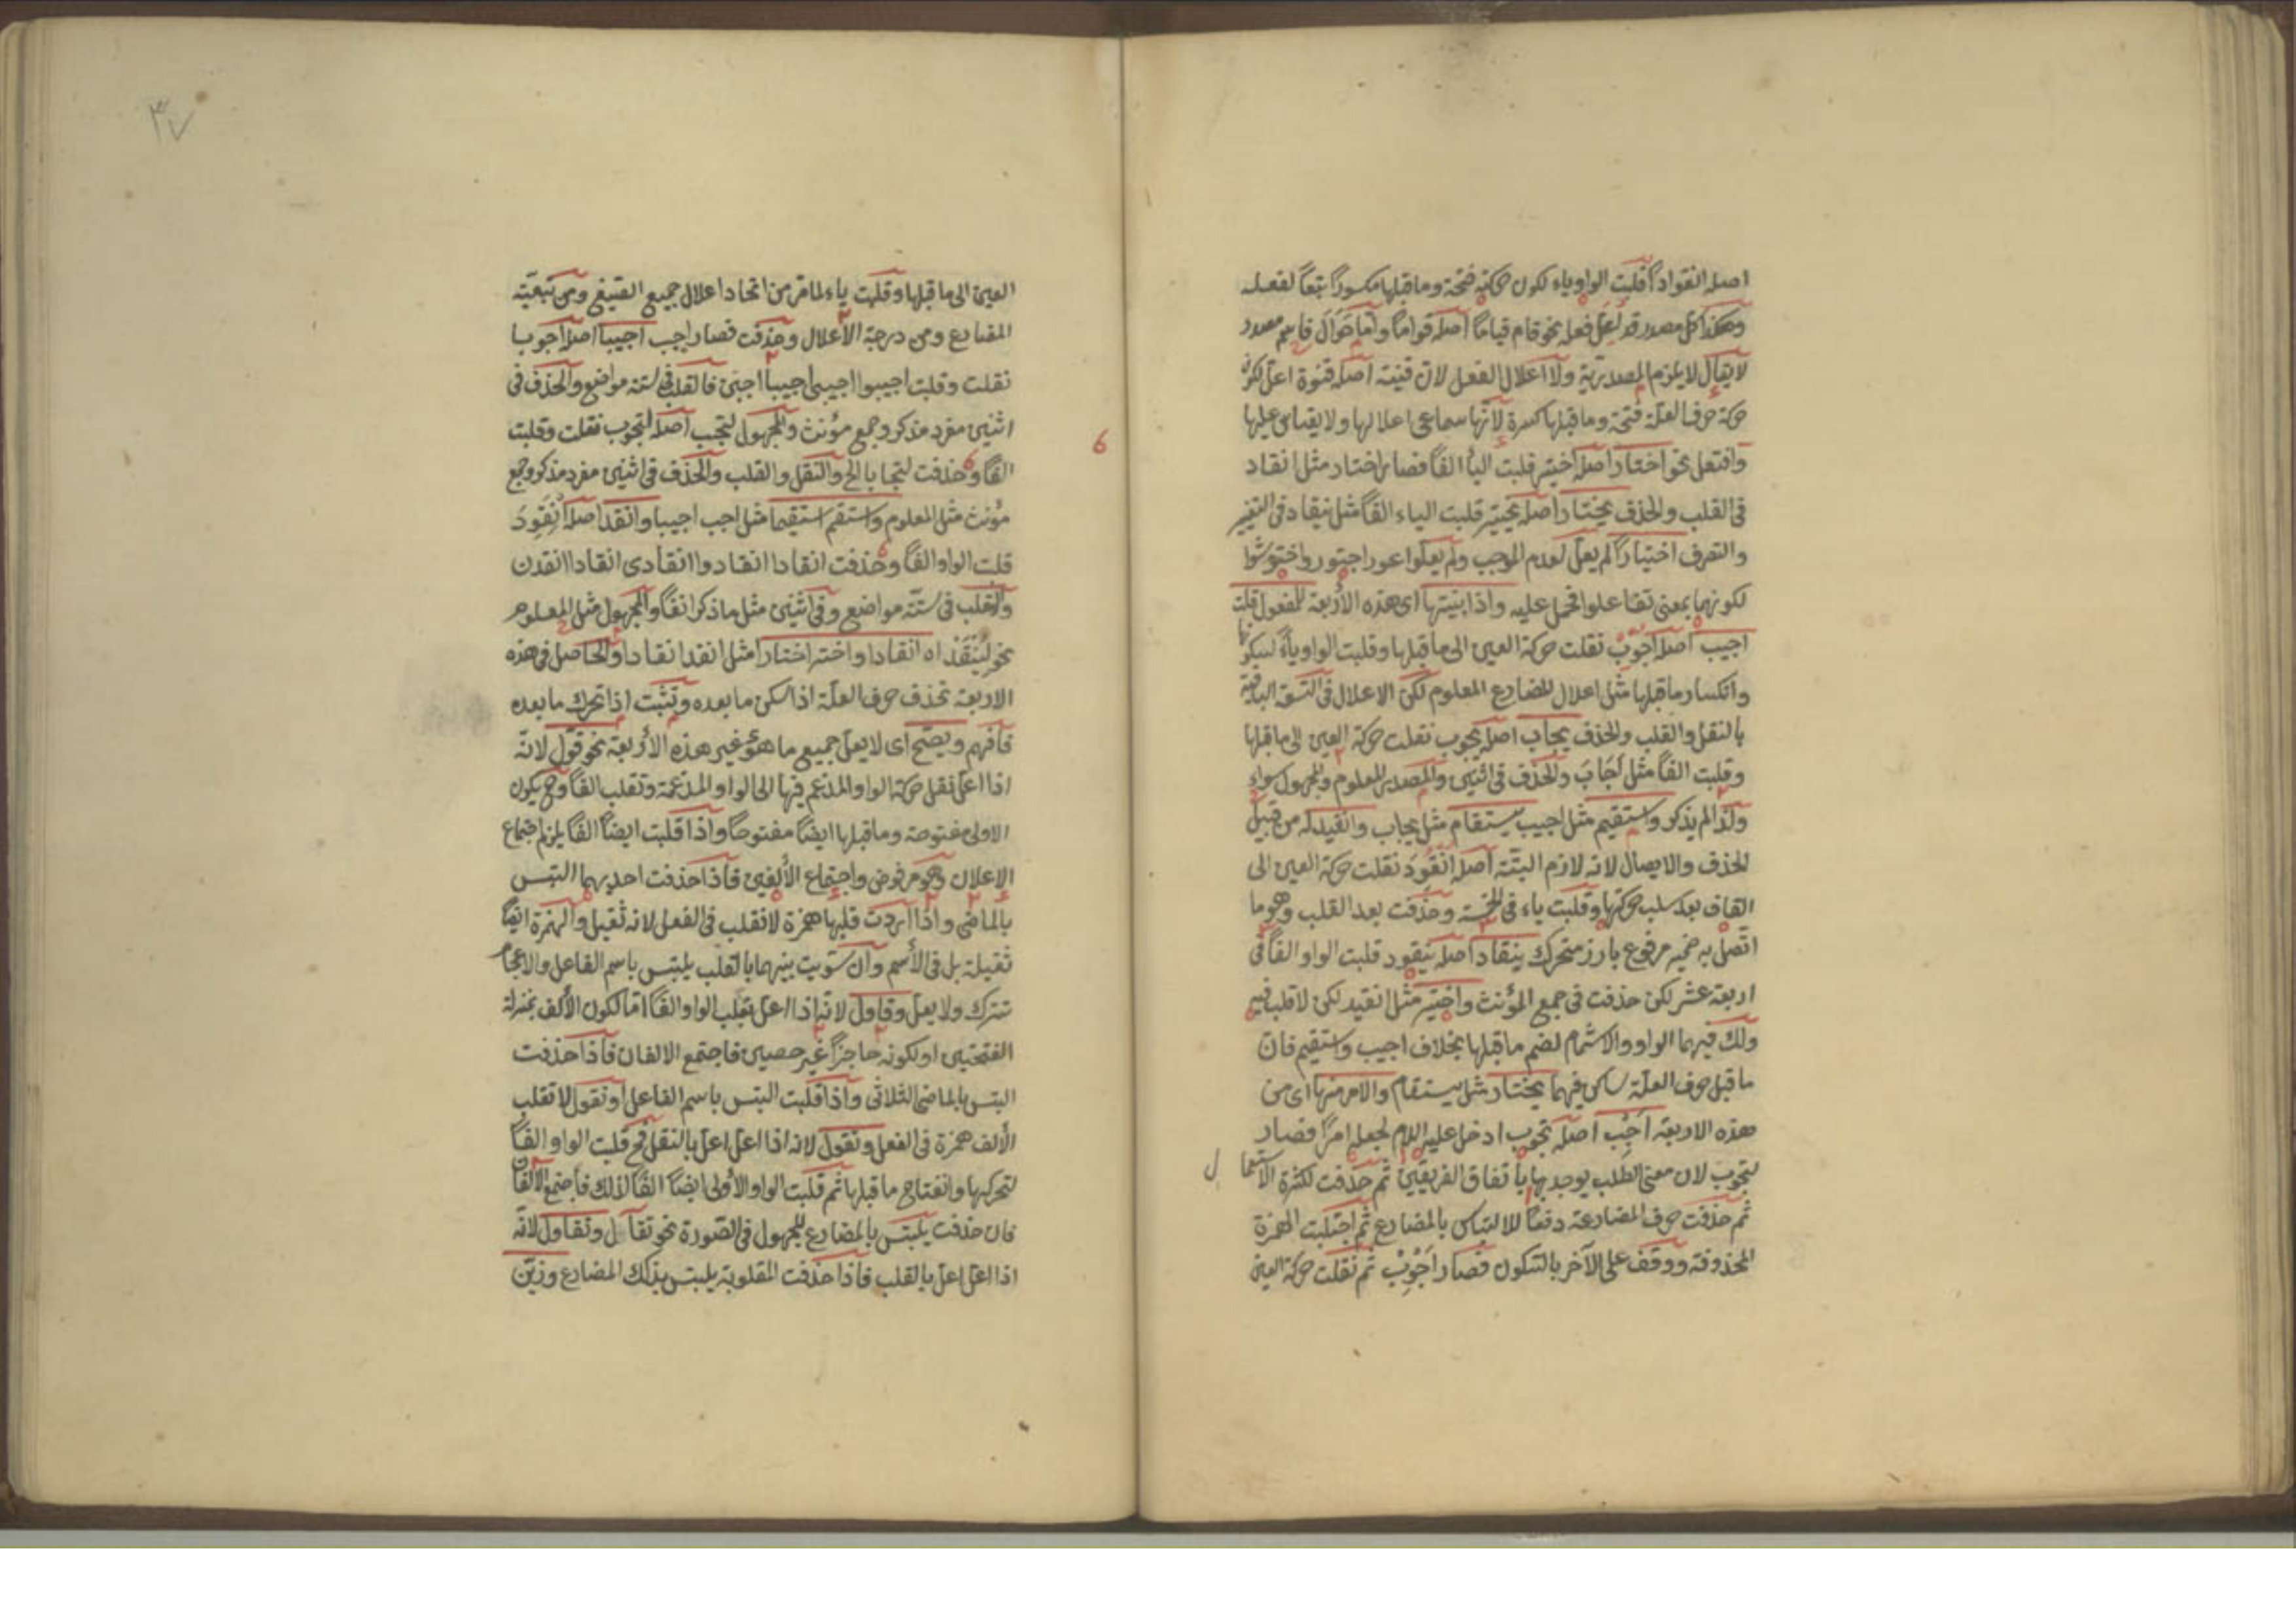 اصله انقوادا قلبت الواو ياء لكون حركته فتحة وما قبلها مكسورا تبعا لفعله
وهكذا كل مصدر قد اعل فعله نحو قام قياما اصله قواما واما حوالَ فاسم مصدر
لا يقال لا يلزم المصدرية ولا اعلال الفعل لان قنية اصله قنوة اعل لكون
حركة حرف العلة فتحة وما قبلها كسرة لانها سماعى اعلالها ولا يقاس عليها
وافتعل نحو اختار اصله اختير قلبت الياء الفا فصار اختار مثل انقاد
فى القلب والحذف يختار اصله يختير قلبت الياء الفا مثل ينقاد فى التغير
والتصرف اختيارا لم يعل لعدم الموجب ولم يعلوا عور اجتور واختوشوا
لكونهما بمعنى تفاعلوا فحمل عليه واذا بنيتها اى هذه الاربعة للمفعول قلت
اجيب اصله اجوب نقلت حركة العين الى ما قبلها وقلبت الواو ياء لسكونها
وانكسار ما قبلها مثل اعلال المضارع المعلوم لكن الاعلال فى التسعة الباقية
بالنقل والقلب والحذف يجاب اصله يجوب نقلت حركة العين الى ما قبلها
وقلبت الفا مثل اجاب والحذف فى اثنين والمصدر للمعلوم والمجهول سواء
ولذا لم يذكر واستقيم مثل اجيب يستقام مثل يجاب وانقيد له من قبيل
الحذف والايصال لانه لازم البتة اصله انقود نقلت حركة العين الى
القاف بعد سلب حركتها وقلبت ياء فى الخمسة وحذفت بعد القلب وهو ما
اتصل به ضمير مرفوع بارز متحرك ينقاد اصله ينقود قلبت الواو الفا فى
اربعة عشر لكن حذفت فى جمع المؤنث واختير مثل انقيد لكن لا قلب فيه
ولك فيهما الواو والاشمام لضم ما قبلها بخلاف اجيب واستقيم فان
ما قبل حرف العلة ساكن فيهما يختار مثل يستقام والامر منها اى من
هذه الاربعة اجب اصله تجوب ادخل عليه اللام لجعله امرا فصار
لتجوب لان معنى الطلب يوجد بها باتفاق الفريقين ثم حذفت لكثرة الاستعمال
ثم حذفت حرف المضارعة دفعا للالتباس بالمضارع ثم اجتلبت الهمزة
المحذوفة ووقف على الآخر بالسكون فصار اجوب ثم نقلت حركة العين
٣٧
العين الى ما قبلها وقلبت ياء لما مر من اتحاد اعلال جميع الصيغ ومن تبعيته
المضارع ومن درجة الاعلال وحذفت فصار اجب اجيبا اصله اجوبا
نقلت وقلبت اجيبوا اجيبى اجيبا اجبن فالقلب فى ستة مواضع والحذف فى
اثنين مفرد مذكر وجمع مؤنث والمجهول لتجب اصله لتجوب نقلت وقلبت
الفا وحذفت لتجابا الخ والنقل والقلب والحذف فى اثنين مفرد مذكر وجمع
مؤنث مثل المعلوم واستقم استقيما مثل اجب اجيبا وانقد اصله انقود
قلبت الواو الفا وحذفت انقادا انقادوا انقادى انقادا انقدن
والقلب فى ستة مواضع وفى اثنين مثل ما ذكر انفا والمجهول مثل المعلوم
نحو لينقد اه انقادا واختر اختارا مثل انقد انقادا والحاصل فى هذه
الاربعة تحذف حرف العلة اذا سكن ما بعده وتثبت اذا تحرك ما بعده
فافهم ويصح اى لا يعل جميع ما هو غير هذه الاربعة نحو قول لانه
اذا اعل نقل حركة الواو المدغم فيها الى الواو المدغمة وتقلب الفا وح يكون
الاولى مفتوحة وما قبلها ايضا مفتوحا واذا قلبت ايضا الفا يلزم اجتماع
الاعلان وهو مرفوض واجتماع الألفين فاذا حذفت احديهما التبس
بالماضى واذا اردت قلبها همزة لا تقلب فى الفعل لانه ثقيل والهمزة ايضا
ثقيلة بل فى الاسم وان سويت بينهما بالقلب يلتبس باسم الفاعل والاعجام
تترك ولا يعل وقاول لانه اذا اعل بقلب الواو الفا اما لكون الألف بمنزلة
الفتحتين او لكونه حاجزا غير حصين فاجتمع الالفان فاذا حذفت
التبس بالماضى الثلاثى واذا قلبت التبس باسم الفاعل او نقول لا تقلب
الألف همزة فى الفعل وتقول لانه اذا اعل اعل بالنقل فح قلبت الواو الفا
لتحركها وانفتاح ما قبلها ثم قلبت الواو الأولى ايضا الفا لذلك فاجتمع الالفان
فان حذفت يلتبس بالمضارع المجهول فى الصورة نحو تقال وتقاول لانه
اذا اعل اعل بالقلب فاذا حذفت المقلوبة يلتبس بذلك المضارع وزين